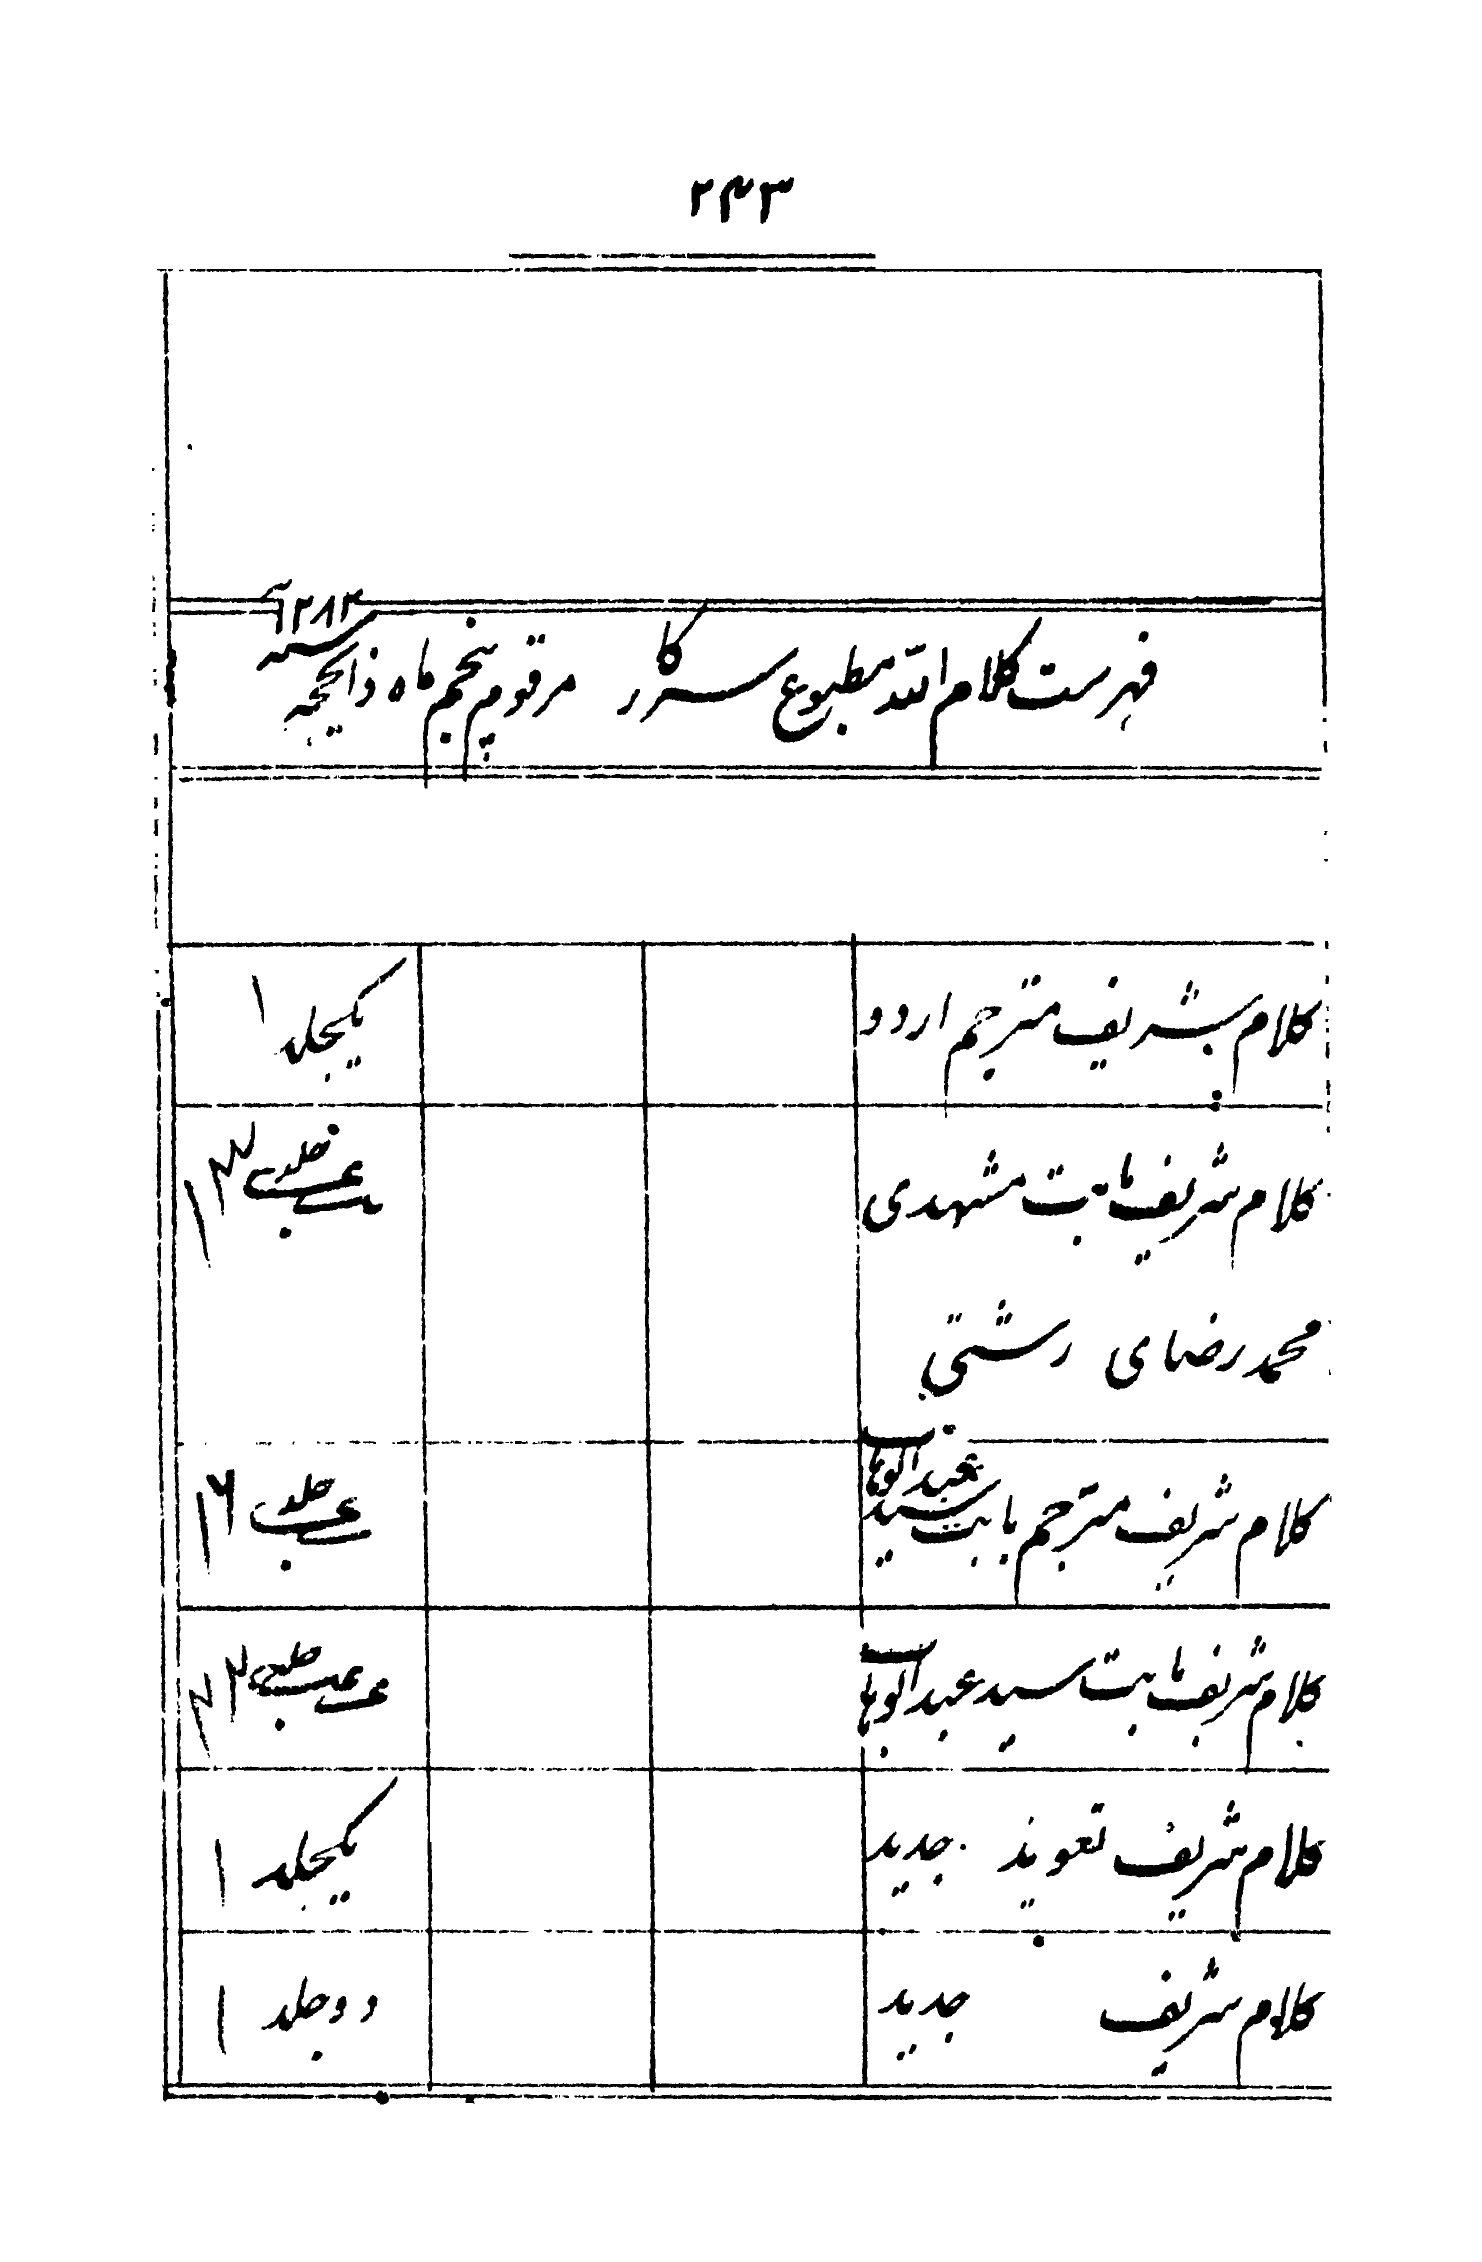 ۲۴۳
فہرست کلام اللہ مطبوع سرکار مرقوم پنجم ماہ ذالحجہ سنہ ۱۲۸۳
کلام شریف مترجم اردو یکجلد ۱
کلام شریف بابت مشہدی جلد ۱۳
محمد رضای رشتی
کلام شریف مترجم بابت سید عبدالوہاب جلد ۱۶
کلام شریف بابت سید عبدالوہاب جلد
کلام شریف تعویذ جدید یکجلد ۱
کلام شریف جدید دوجلد ۱